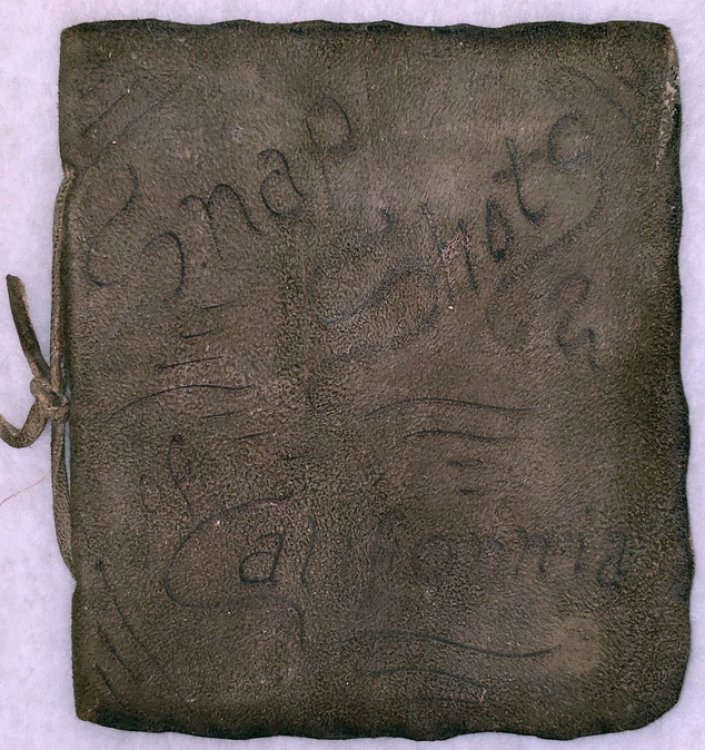 Snap
Shots
of
California